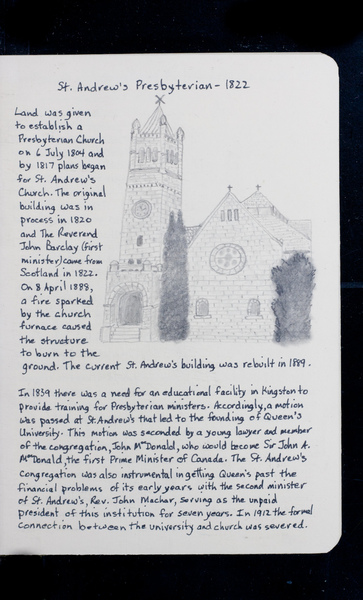 St. Andrew's Presbyterian - 1822
Land was given
to establish a
Presbyterian Church
on 6 July 1804 and
by 1817 plans began
for St. Andrew's
Church. The original
building was in
process in 1820
and The Reverend
John Barclay (first
minister) came from
Scotland in 1822.
On 8 April 1888,
a fire sparked
by the church
furnace caused
the structure
to burn to the
ground. The current St. Andrew's building was rebuilt in 1889.
In 1839 there was a need for an educational facility in Kingston to
provide training for Presbyterian ministers. Accordingly, a motion
was passed at St. Andrew's that led to the founding of Queen's
University. This motion was seconded by a young lawyer and member
of the congregation, John McDonald, who would become Sir John A.
McDonald, the first Prime Minister of Canada. The St. Andrew's
Congregation was also instrumental in getting Queen's past the
financial problems of its early years with the second minister
of St. Andrew's, Rev. John Machar, serving as the unpaid
president of this institution for seven years. In 1912 the formal
connection between the university and church was severed.